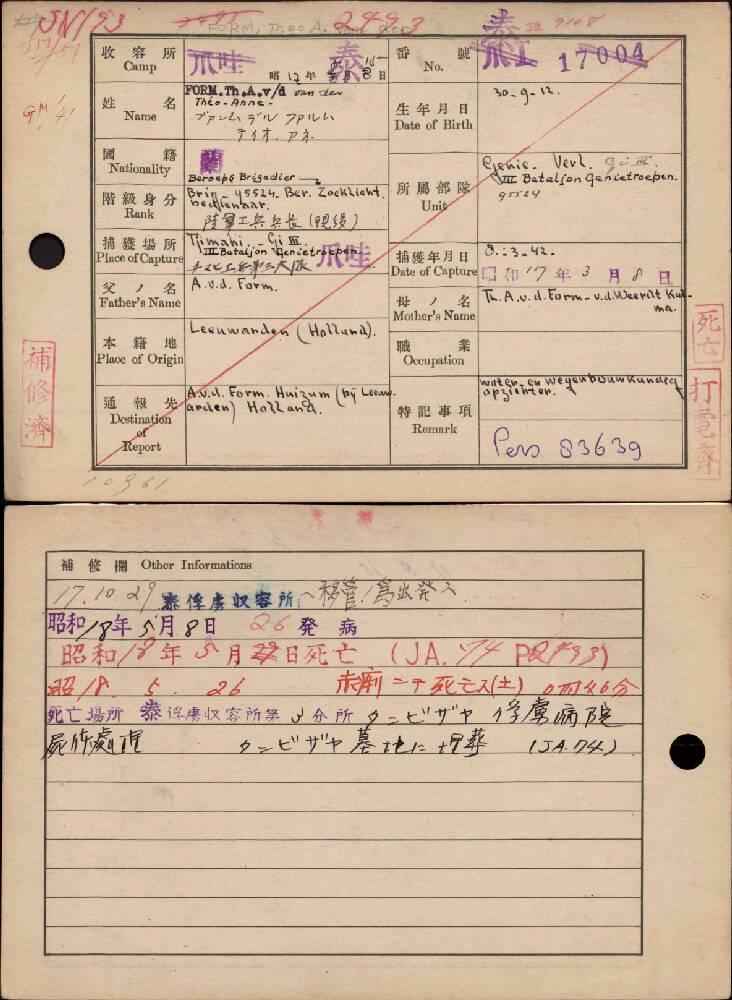 JN193
2493
FORM, Theo A. van der
泰
III 9108
J17/51
GM 1/41
收容所 Camp
爪哇
泰
昭17年 8月15日
番號 No.
爪I 17004
姓名 Name
FORM. Th. A. v/d van der
Théo-Anne-
ファルム デル ファルム
テイオ. アネ.
生年月日 Date of Birth
30-9-12.
國籍 Nationality
蘭
所屬部隊 Unit
Genie. Verl. Gi III.
III Bataljon Genietroepen.
95524
階級身分 Rank
Beroeps Brigadier
Brig- 95524. Ber. Zoeklicht.
bediennar.
陸軍工兵兵長 (現役)
捕獲場所 Place of Capture
Tjimahi. - Gi III.
III Bataljon Genietroepen
チマヒ工兵第三大隊
爪哇
捕獲年月日 Date of Capture
8.-3-42.
昭和17年3月8日
父ノ名 Father's Name
A.v.d. Form.
母ノ名 Mother's Name
Th. A.v.d. Form - v.d. Weerdt Kui-
ma.
本籍地 Place of Origin
Leeuwanden (Holland).
職業 Occupation
water- en wegenbouwkundig
opzichter.
通報先 Destination of Report
A.v.d. Form. Huizum (bij Leeuw-
arden) Holland.
特記事項 Remark
Pers 83639
補修濟
死亡
打電濟
10961
補修欄 Other Informations
17.10 29 泰俘虜収容所ヘ移管ノ爲出発ス
昭和18年5月8日 26 発病
昭和18年5月22日死亡 (JA.74 P2493)
昭18. 5. 26 赤痢ニテ死亡ス(土) 0时46分
死亡場所 泰俘虜収容所第3分所 タンビザヤ 俘虜病院
屍体處理 タンビザヤ墓地に埋葬 (JA.74)